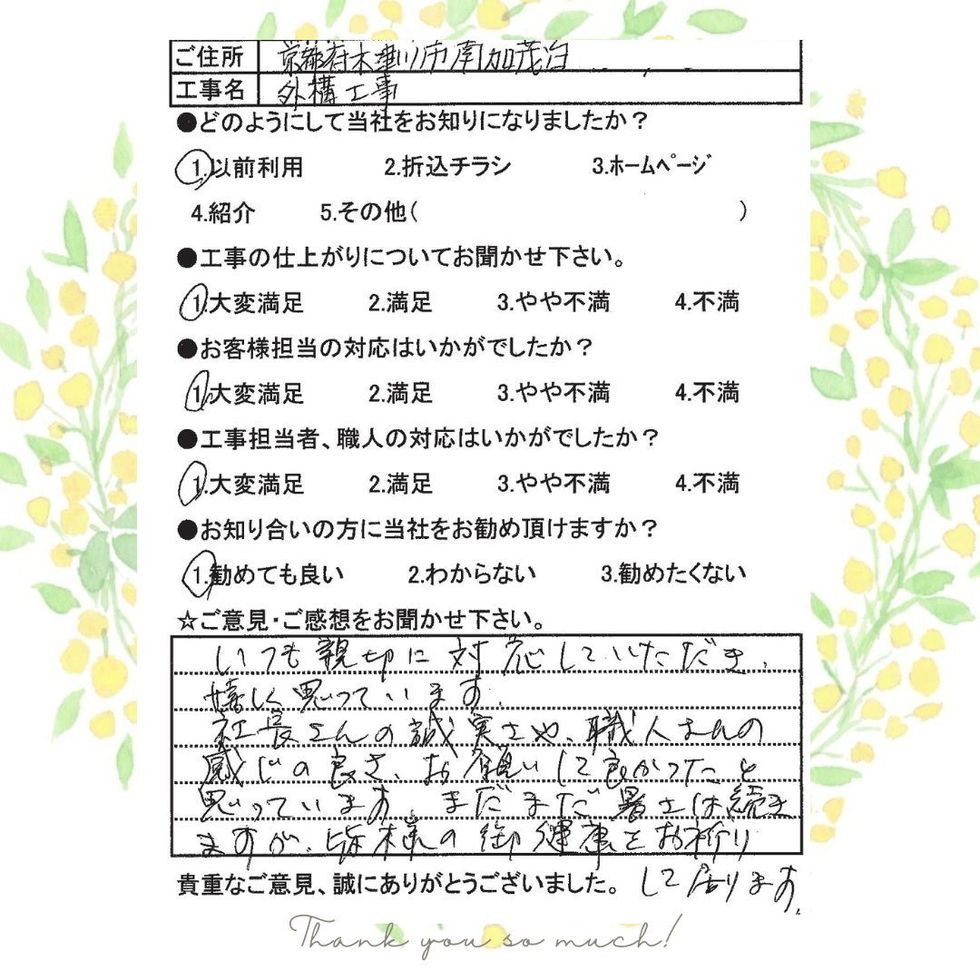 ご住所 京都府木津川市南加茂台
工事名 外構工事
●どのようにして当社をお知りになりましたか？
1.以前利用 2.折込チラシ 3.ホームページ
4.紹介 5.その他( )
●工事の仕上がりについてお聞かせ下さい。
1.大変満足 2.満足 3.やや不満 4.不満
●お客様担当の対応はいかがでしたか？
1.大変満足 2.満足 3.やや不満 4.不満
●工事担当者、職人の対応はいかがでしたか？
1.大変満足 2.満足 3.やや不満 4.不満
●お知り合いの方に当社をお勧め頂けますか？
1.勧めても良い 2.わからない 3.勧めたくない
☆ご意見・ご感想をお聞かせ下さい。
いつも親切に対応していただき、
嬉しく思っています。
社長さんの誠実さや、職人さんの
感じの良さ、お願いして良かったと
思っています。まだまだ暑さは続き
ますが、皆様の御健康をお祈り
して居ります。
貴重なご意見、誠にありがとうございました。
Thank you so much!